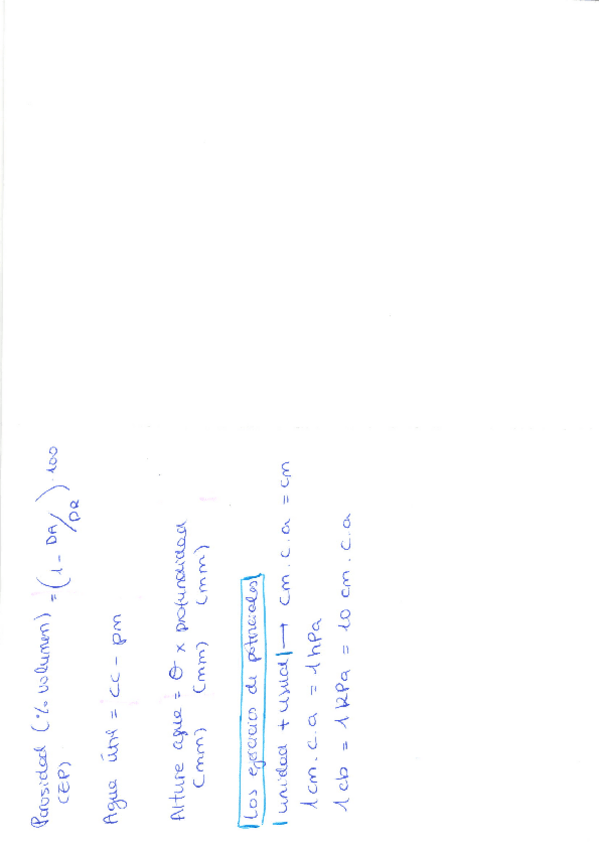 Porosidad (% volumen) = (1 - DA/DR) · 100
(EP)
Agua útil = CC - pm
Altura agua = θ x profundidad
(mm) (mm) (mm)
Los ejercicios de potenciales
unidad + usual → cm. c. a = cm
1 cm. c. a = 1 hPa
1 cb = 1 kPa = 10 cm. c. a